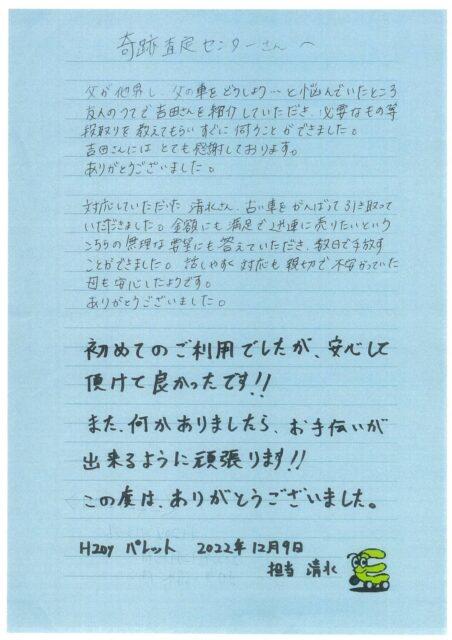 奇跡査定センターさんへ
父が他界し、父の車をどうしよう…と悩んでいたところ
友人のつてで吉田さんを紹介していただき、必要なもの等
段取りを教えてもらいすぐに伺うことができました。
吉田さんにはとても感謝しております。
ありがとうございました。
対応していただいた清水さん、古い車をがんばって引き取って
いただきました。金額にも満足で早速に売りたいという
こちらの無理な要望にも答えていただき、数日で手放す
ことができました。話しやすく対応も親切で不安がっていた
母も安心したようです。
ありがとうございました。
初めてのご利用でしたが、安心して
頂けて良かったです!!
また、何かありましたら、お手伝いが
出来るように頑張ります!!
この度は、ありがとうございました。
H20y パレット 2022年12月9日
担当 清水